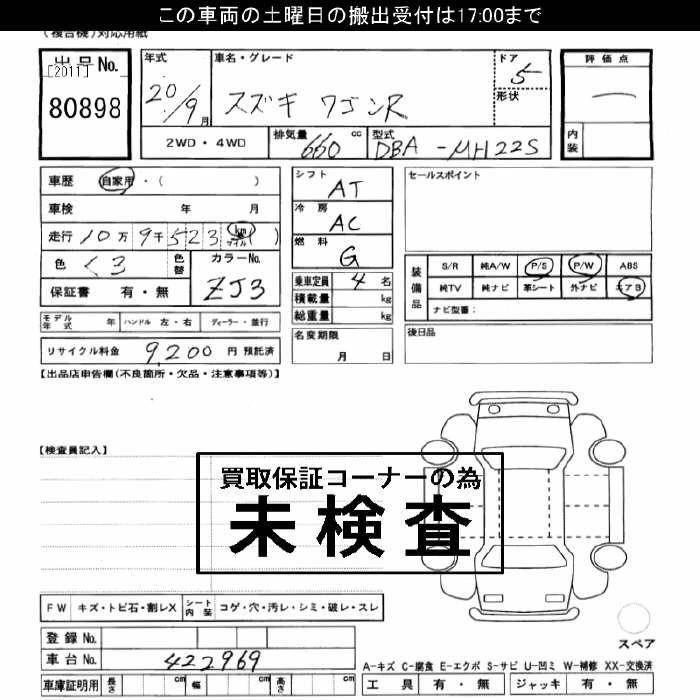 この車両の土曜日の搬出受付は17:00まで
(複合機)対応用紙
出品No.
[2011]
80898
年式 20/9月
車名・グレード
スズキ ワゴンR
ドア 5
形状
評価点
内装
2WD・4WD
排気量 660 cc
型式 DBA-MH22S
車歴 自家用・( )
車検 年 月
走行 10万9千523 km マイル ( )
色 くろ 色替
カラーNo. ZJ3
保証書 有・無
シフト AT
冷房 AC
燃料 G
乗車定員 4名
積載量 kg
総重量 kg
セールスポイント
装備品
S/R 純A/W P/S P/W ABS
純TV 純ナビ 革シート 外ナビ エアB
ナビ型番:
モデル年式 年 ハンドル 左・右 ディーラー・並行
リサイクル料金 9,200 円 預託済
名変期限
月 日
後日品
【出品店申告欄(不良箇所・欠品・注意事項等)】
【検査員記入】
買取保証コーナーの為
未検査
FW キズ・トビ石・割レX シート内装 コゲ・穴・汚レ・シミ・破レ・スレ
スペア
登録No.
車台No. 422969
A-キズ C-腐食 E-エクボ S-サビ U-凹ミ W-補修 XX-交換済
車庫証明用 長さ cm 幅 cm 高さ cm
工具 有・無 ジャッキ 有・無